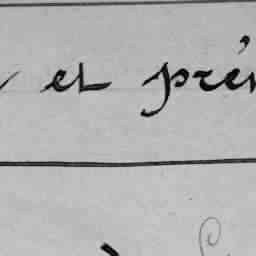 et pré